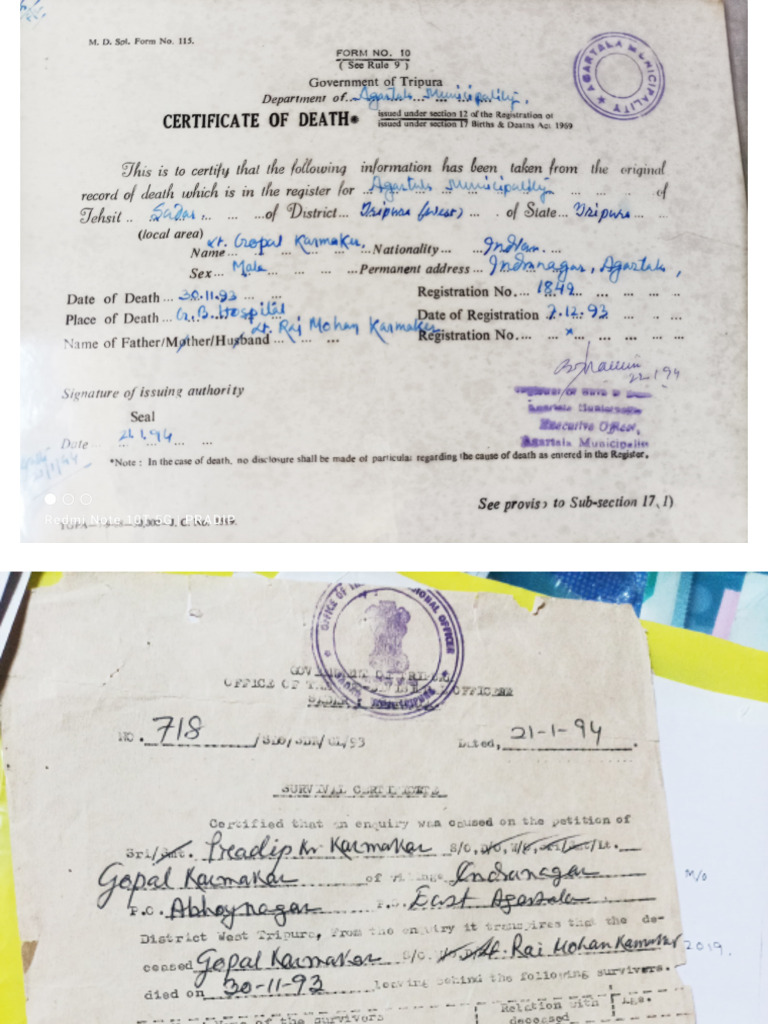 M. D. Spl. Form No. 115.
FORM NO. 10
( See Rule 9 )
Government of Tripura
AGARTALA MUNICIPALITY
Department of Agartala Municipality.
CERTIFICATE OF DEATH issued under section 12 of the Registration of
issued under section 17 Births & Deaths Act 1969
This is to certify that the following information has been taken from the original
record of death which is in the register for Agartala Municipality of
Tehsil Sadar, of District Tripura (West) of State Tripura
(local area)
Name Lt. Gopal Karmakar, Nationality Indian.
Sex Male Permanent address Indranagar, Agartala,
Date of Death 30.11.93 Registration No. 1849
Place of Death G.B. Hospital Date of Registration 2.12.93
Name of Father/Mother/Husband Lt. Raj Mohan Karmakar Registration No. ×
Signature of issuing authority
Seal
Date 21.1.94
Agartala Municipality
Executive Officer,
Agartala Municipality
*Note : In the case of death, no disclosure shall be made of particular regarding the cause of death as entered in the Register.
See proviso to Sub-section 17(1)
Redmi Note 10T 5G | PRADIP
GOVERNMENT OF TRIPURA
OFFICE OF THE OFFICER
NO. 718 /93 Dated, 21-1-94.
SURVIVAL CERTIFICATE
Certified that an enquiry was caused on the petition of
Sri/Smt. Preadip Kr Karmakar S/O,
Gopal Karmakar of village Indranagar
M/O
P.O. Abhoynagar P.S. East Agartala
District West Tripura, From the enquiry it transpires that the de-
ceased Gopal Karmakar S/O. Lt. Rai Mohan Karmakar
2019.
died on 30-11-93 leaving behind the following survivers.
Name of the survivers Relation with deceased Age.